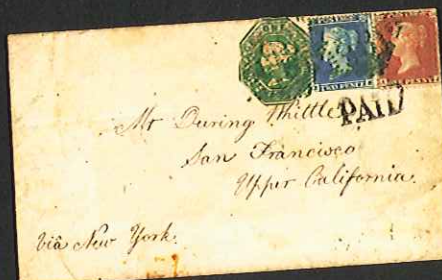 POSTAGE
TWO PENCE
PAID
Mr During Whittle
San Francisco
Upper California.
Viâ New York.